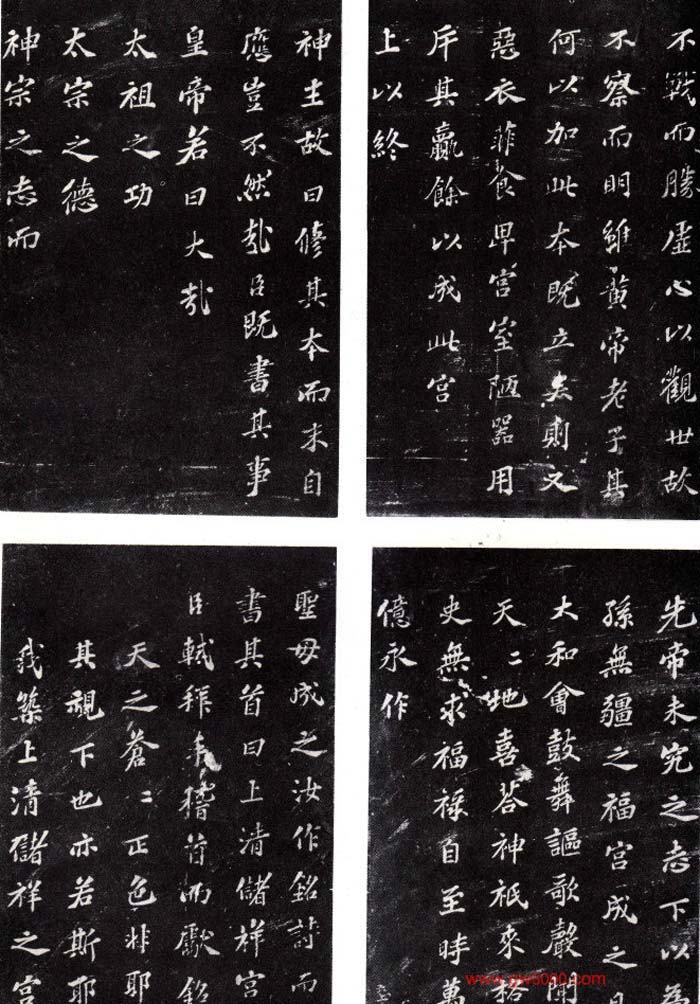 不戰而勝虛心以觀世故
不察而明雖黃帝老子其
何以加此本既立矣則又
惡衣菲食卑宮室陋器用
斥其贏餘以成此宮
上以終
先帝未究之志下以為
孫無疆之福宮成之
大和會鼓舞謳歌聲聞
天〻地喜答神祇來格
史無求福祿自至時萬
億永作
神主故曰修其本而末自
應豈不然哉臣既書其事
皇帝若曰大哉
太祖之功
太宗之德
神宗之志而
聖母成之汝作銘詩而
書其首曰上清儲祥宮
臣軾拜手稽首而獻銘
天之蒼〻正色非耶
其視下也亦若斯耶
我築上清儲祥之宮